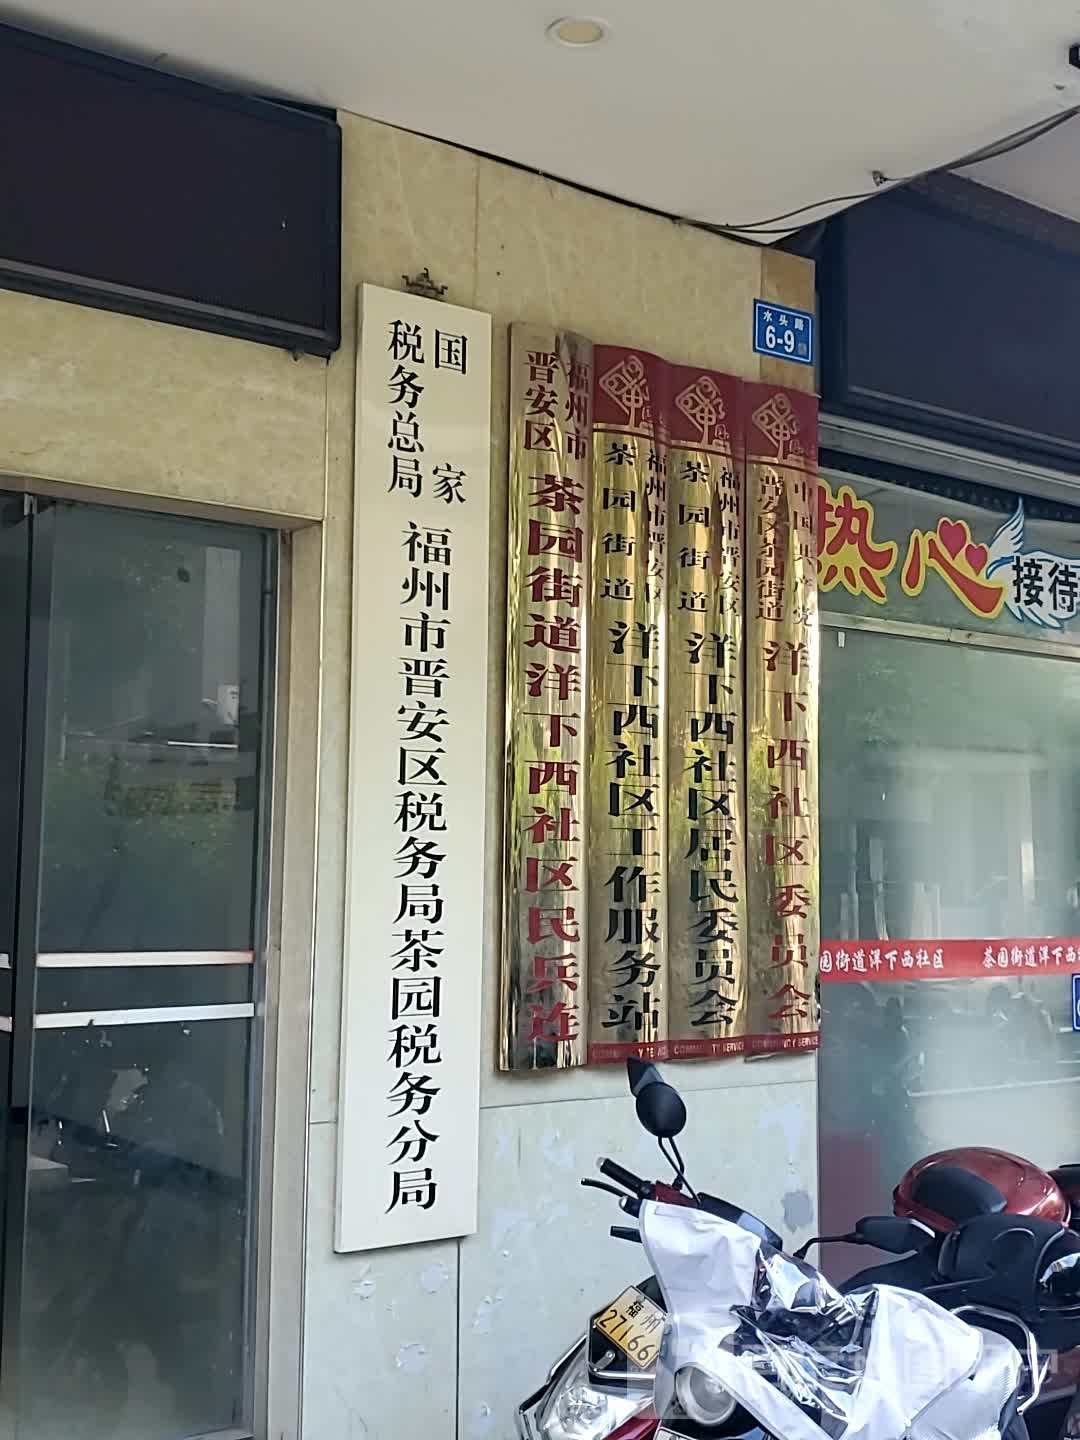 国家
税务总局
福州市晋安区税务局茶园税务分局
福州市
晋安区
茶园街道洋下西社区民兵连
福州市晋安区
茶园街道
洋下西社区工作服务站
COMMUNITY SERVICE
福州市晋安区
茶园街道
洋下西社区居民委员会
COMMUNITY SERVICE
中国共产党
晋安区茶园街道
洋下西社区委员会
COMMUNITY SERVICE
水头路
6-9
热心接待
园街道洋下西社区 茶园街道洋下西社
福州
27166